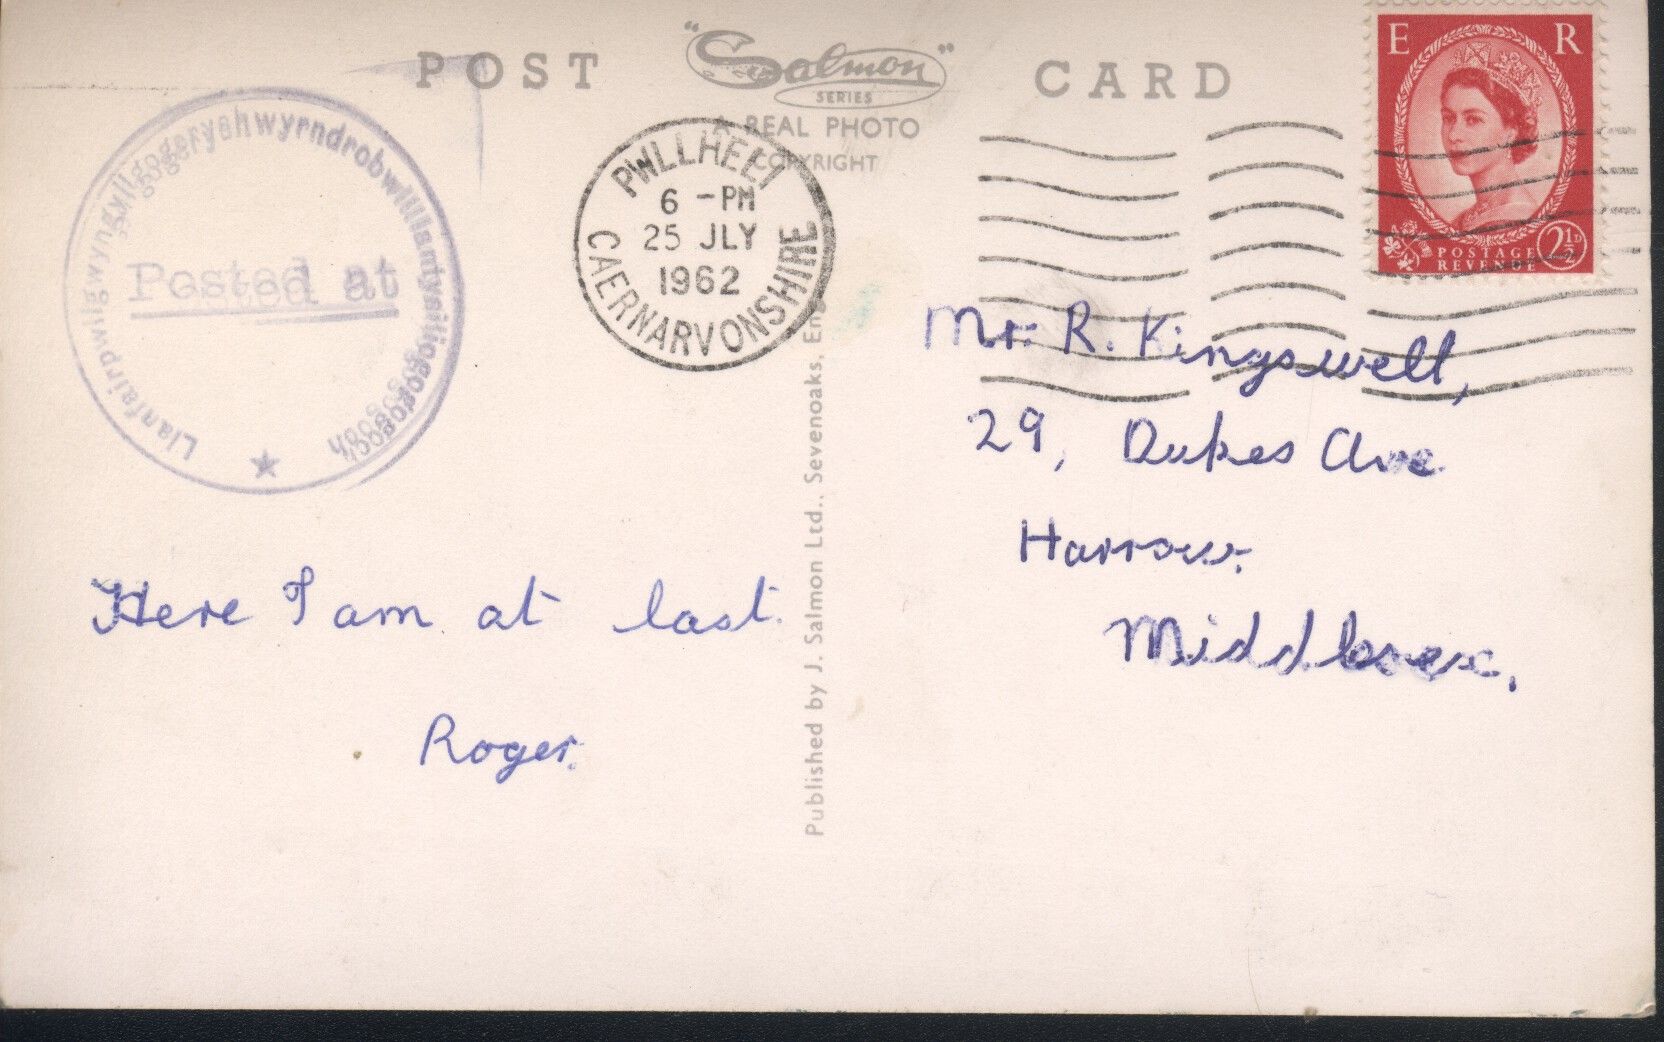 POST "Salmon" CARD
SERIES
A REAL PHOTO
COPYRIGHT
Llanfairpwllgwyngyllgogerychwyrndrobwllllantysiliogogogoch
Posted at
PWLLHELI
6 - PM
25 JLY
1962
CAERNARVONSHIRE
E R
POSTAGE
REVENUE
2½D
Mr. R. Kingswell,
29, Dukes Ave
Harrow.
Middlesex.
Here I am at last.
Roger.
Published by J. Salmon Ltd., Sevenoaks, Eng